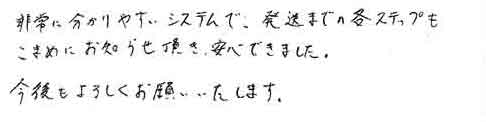 非常に分かりやすいシステムで、発送までの各ステップも
こまめにお知らせ頂き、安心できました。
今後もよろしくお願いいたします。